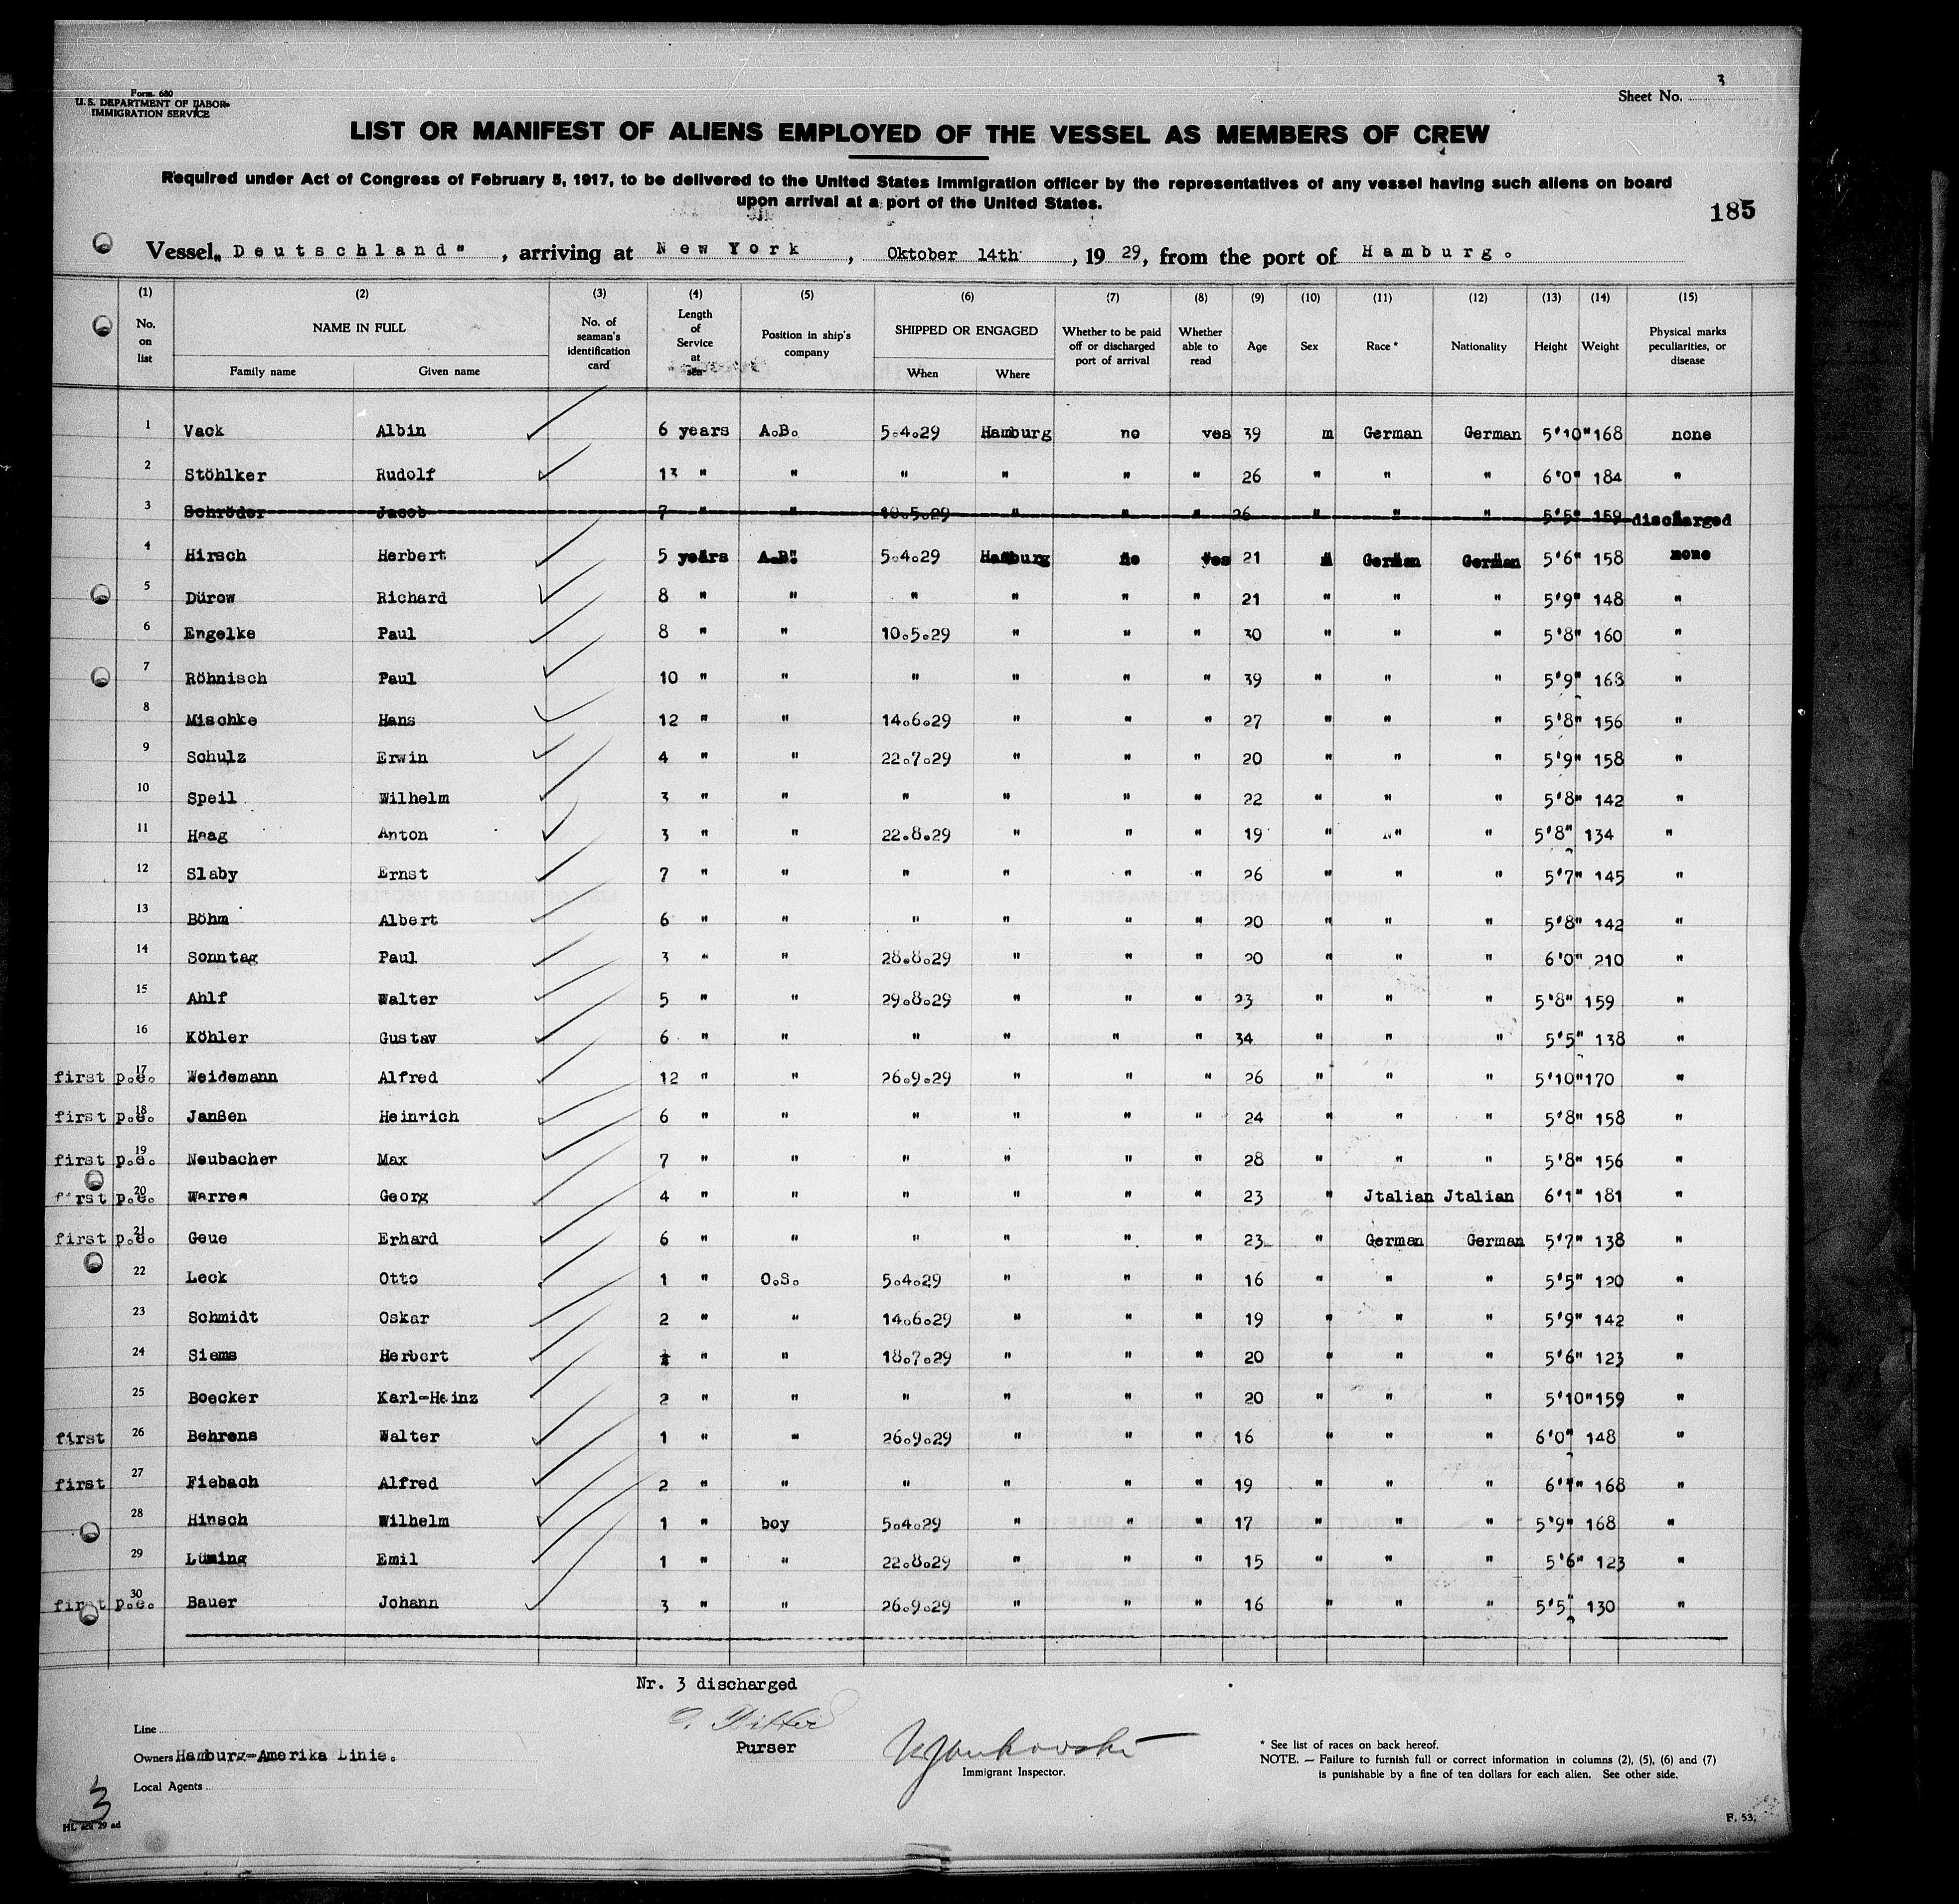 Form 680
U. S. DEPARTMENT OF LABOR
IMMIGRATION SERVICE
Sheet No. 3
LIST OR MANIFEST OF ALIENS EMPLOYED OF THE VESSEL AS MEMBERS OF CREW
Required under Act of Congress of February 5, 1917, to be delivered to the United States immigration officer by the representatives of any vessel having such aliens on board
upon arrival at a port of the United States.
185
Vessel „Deutschland" , arriving at New York , Oktober 14th , 19 29, from the port of Hamburg.
(1) (2) (3) (4) (5) (6) (7) (8) (9) (10) (11) (12) (13) (14) (15)
No. on list NAME IN FULL Family name Given name No. of seaman's identification card Length of Service at sea Position in ship's company SHIPPED OR ENGAGED When Where Whether to be paid off or discharged port of arrival Whether able to read Age Sex Race * Nationality Height Weight Physical marks peculiarities, or disease
1 Vack Albin 6 years A.B. 5.4.29 Hamburg no yes 39 m German German 5'10" 168 none
2 Stöhlker Rudolf 13 " " " " " " 26 " " " 6'0" 184 "
3 Schröder Jacob 7 " " 10.5.29 " " " 26 " " " 5'5" 159 discharged
4 Hirsch Herbert 5 years A.B. 5.4.29 Hamburg no yes 21 m German German 5'6" 158 none
5 Dürow Richard 8 " " " " " " 21 " " " 5'9" 148 "
6 Engelke Paul 8 " " 10.5.29 " " " 30 " " " 5'8" 160 "
7 Röhnisch Paul 10 " " " " " " 39 " " " 5'9" 163 "
8 Mischke Hans 12 " " 14.6.29 " " " 27 " " " 5'8" 156 "
9 Schulz Erwin 4 " " 22.7.29 " " " 20 " " " 5'9" 158 "
10 Speil Wilhelm 3 " " " " " " 22 " " " 5'8" 142 "
11 Haag Anton 3 " " 22.8.29 " " " 19 " " " 5'8" 134 "
12 Slaby Ernst 7 " " " " " " 26 " " " 5'7" 145 "
13 Böhm Albert 6 " " " " " " 20 " " " 5'8" 142 "
14 Sonntag Paul 3 " " 28.8.29 " " " 20 " " " 6'0" 210 "
15 Ahlf Walter 5 " " 29.8.29 " " " 23 " " " 5'8" 159 "
16 Köhler Gustav 6 " " " " " " 34 " " " 5'5" 138 "
first p.e. 17 Weidemann Alfred 12 " " 26.9.29 " " " 26 " " " 5'10" 170 "
first p.e. 18 Janßen Heinrich 6 " " " " " " 24 " " " 5'8" 158 "
first p.e. 19 Neubacher Max 7 " " " " " " 28 " " " 5'8" 156 "
first p.e. 20 Warres Georg 4 " " " " " " 23 " Jtalian Jtalian 6'1" 181 "
first p.e. 21 Geue Erhard 6 " " " " " " 23 " German German 5'7" 138 "
22 Leck Otto 1 " O.S. 5.4.29 " " " 16 " " " 5'5" 120 "
23 Schmidt Oskar 2 " " 14.6.29 " " " 19 " " " 5'9" 142 "
24 Siems Herbert " " 18.7.29 " " " 20 " " " 5'6" 123 "
25 Boecker Karl-Heinz 2 " " " " " " 20 " " " 5'10" 159 "
first 26 Behrens Walter 1 " " 26.9.29 " " " 16 " " " 6'0" 148 "
first 27 Fiebach Alfred 2 " " " " " " 19 " " " 6'1" 168 "
28 Hinsch Wilhelm 1 " boy 5.4.29 " " " 17 " " " 5'9" 168 "
29 Lüming Emil 1 " " 22.8.29 " " " 15 " " " 5'6" 123 "
first p.e. 30 Bauer Johann 3 " " 26.9.29 " " " 16 " " " 5'5" 130 "
Nr. 3 discharged
Line
Purser
Owners Hamburg-Amerika Linie.
Immigrant Inspector.
Local Agents
* See list of races on back hereof.
NOTE. — Failure to furnish full or correct information in columns (2), (5), (6) and (7)
is punishable by a fine of ten dollars for each alien. See other side.
3
F. 53.